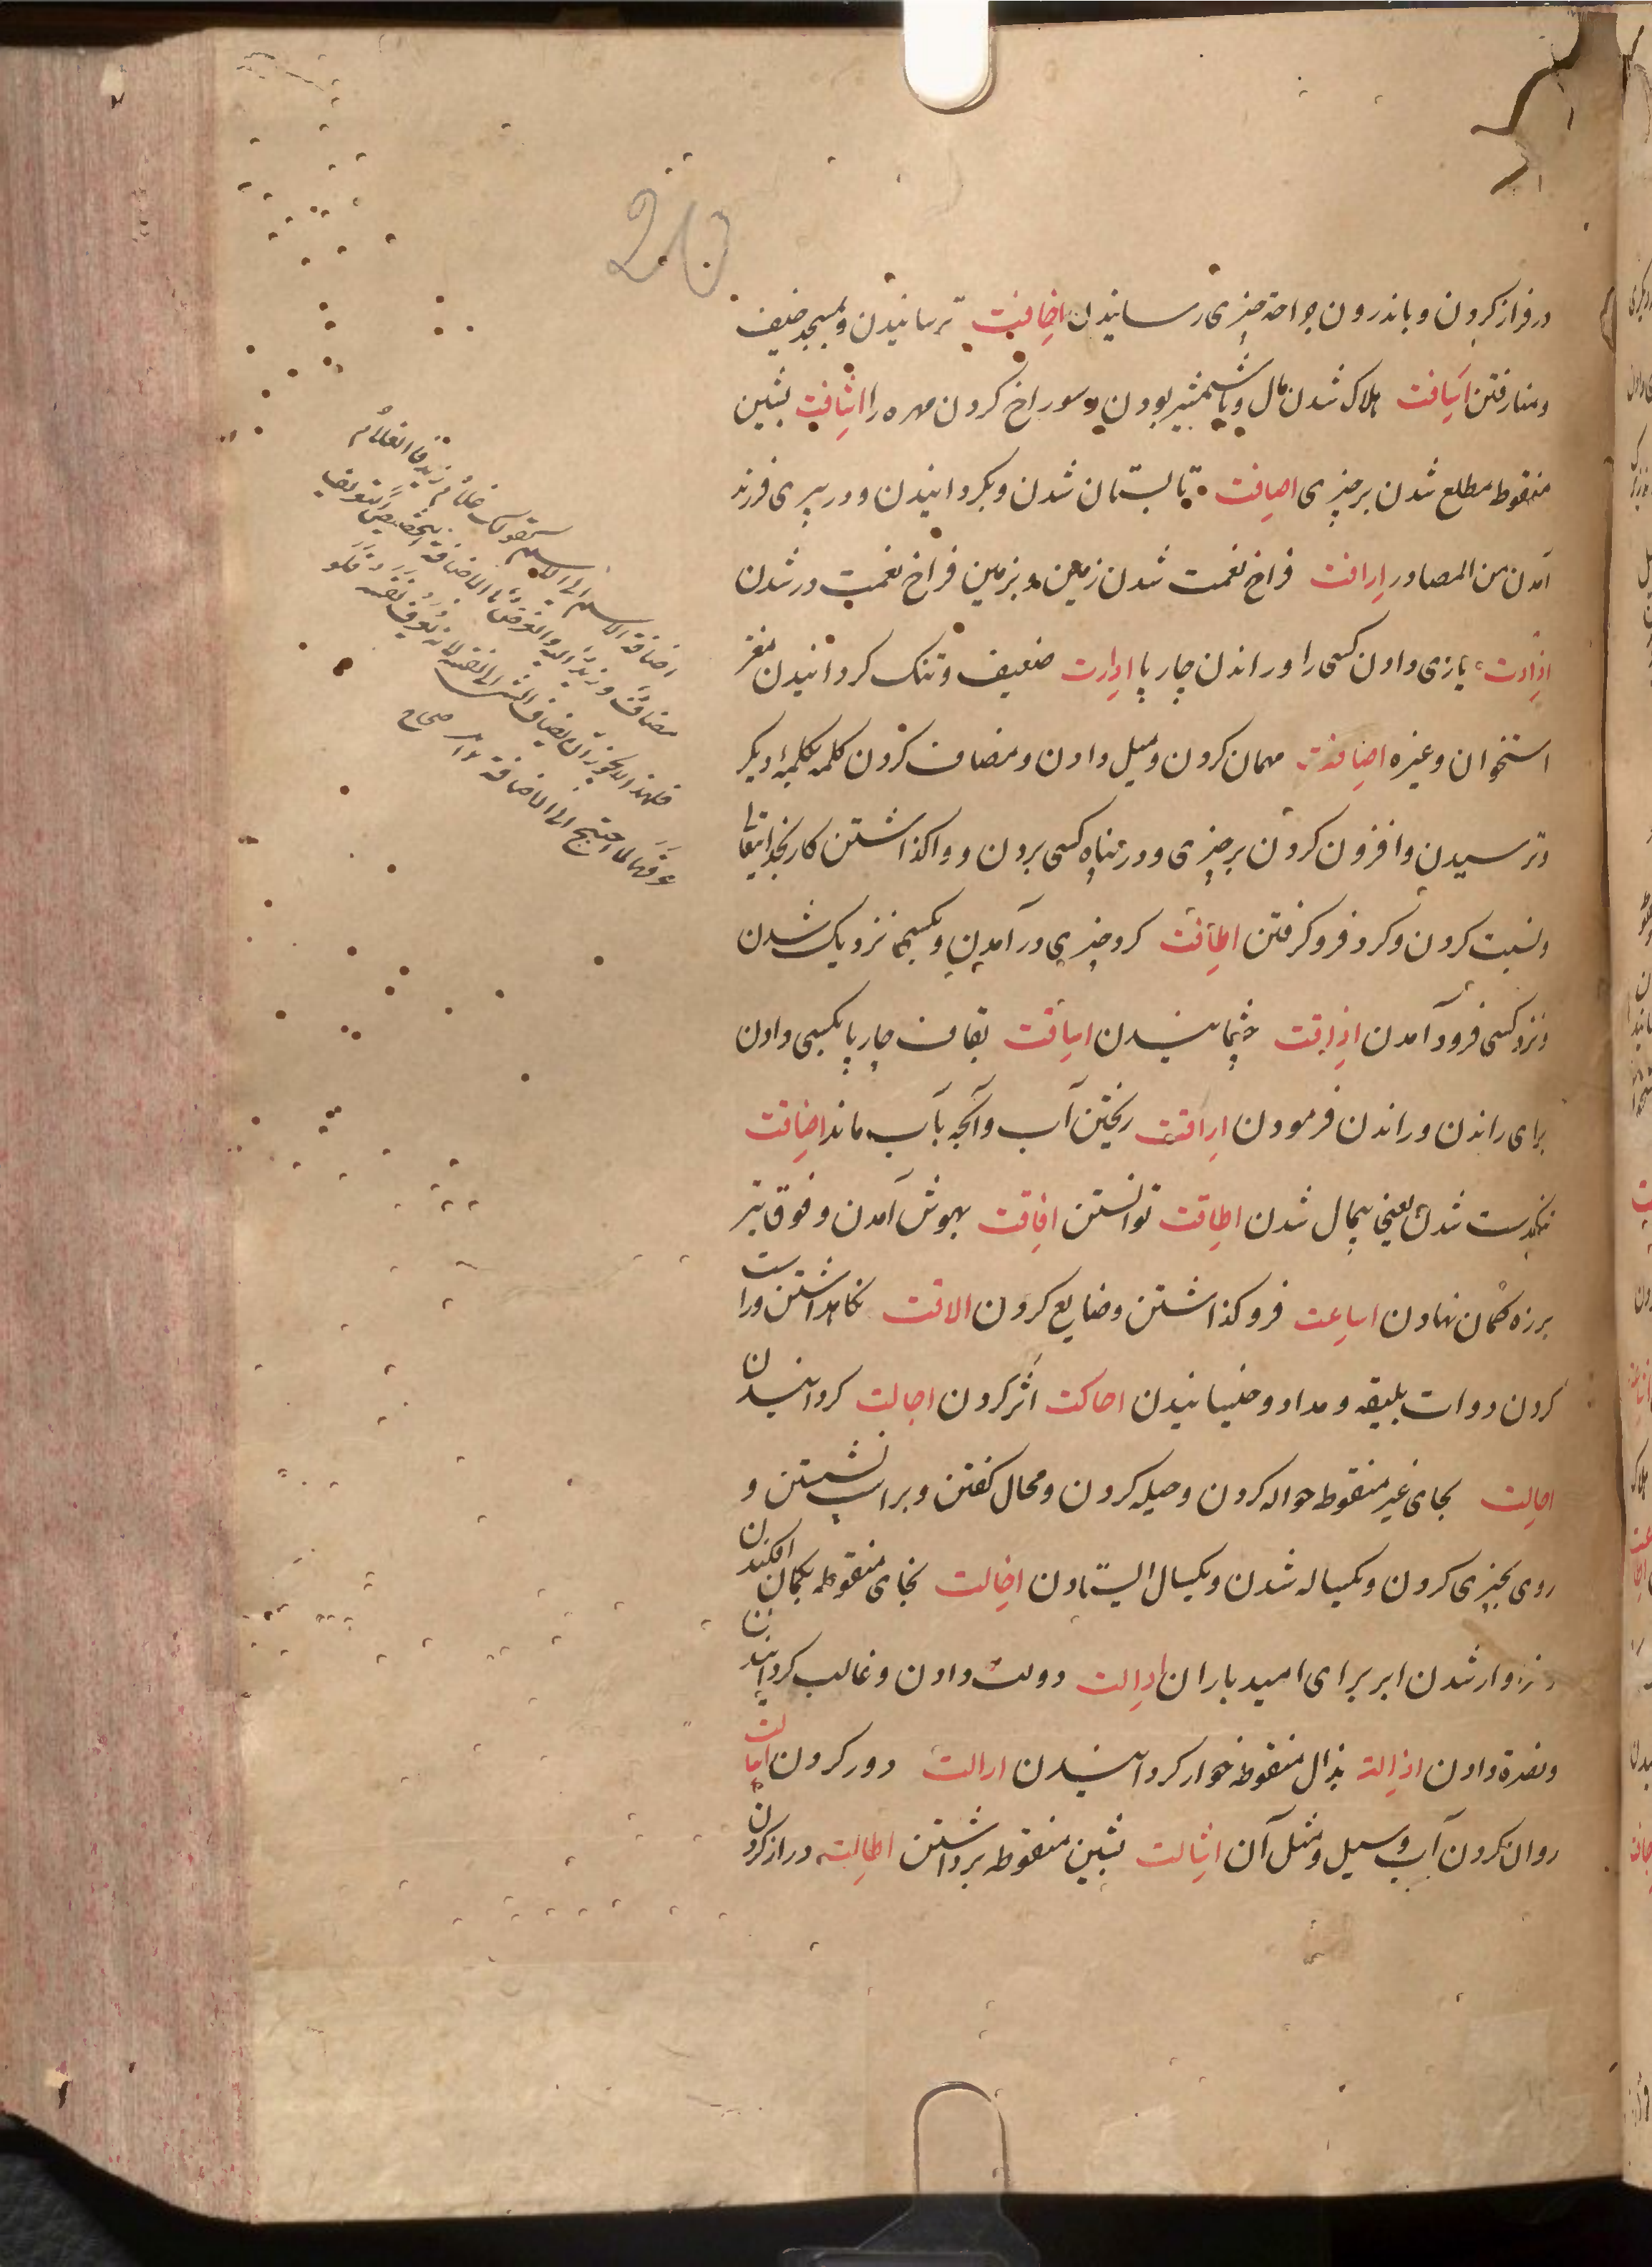 20
در فراز کردن و باندرون جراحة چیزی رسانیدن اخافت ترسانیدن و بمسجد خیف
و منا رفتن اسافت هلاک شدن مال و با شمشیر بودن و سوراخ کردن مهره را اشافت بشین
منقوط مطلع شدن بر چیزی اصافت تابستان شدن و بکردانیدن و در پیری فرزند
آمدن من المصادر ارافت فراخ نعمت شدن زمین و بزمین فراخ نعمت در شدن
اذادت یازی دادن کسی را در راندن چارپا ادارت ضعیف و تنک کردانیدن مغز
استخوان و غیره اضافت مهمان کردن و میل دادن و مضاف کردن کلمه بکلمهٔ دیکر
و ترسیدن و افزون کردن بر چیزی و در پناه کسی بردن و واکذاشتن کار بخدایتعا
و نسبت کردن و کرد فرو کرفتن اطافت کرد چیزی در آمدن و بکسی نزدیک شدن
و نزد کسی فرود آمدن اذاقت چشانیدن اساقت بقاف چارپا بکسی دادن
برای راندن و راندن فرمودن اراقت ریختن آب و آنچه بآب ماند اضاقت
تنکدست شدن یعنی بیمال شدن اطاقت توانستن افاقت بهوش آمدن و فوق تیر
بر زه کمان نهادن اساعت فرو کذاشتن و ضایع کردن الاقت نکاهداشتن و راست
کردن دوات بلیقه و مداد و چسپانیدن احاکت اثر کردن اجالت کردانیدن
احالت بحای غیر منقوط حواله کردن و حیله کردن و محال کفتن و بر اسپ نشستن و
روی بچیزی کردن و یکساله شدن و یکسال ایستادن اخالت بخای منقوطه بکمان افکندن
و سزاوار شدن ابر برای امید باران ادالت دولت دادن و غالب کردانیدن
و نصرة دادن اذالة بذال منقوطه خوار کردانیدن ازالت دور کردن اسالت
روان کردن آب و سیل و مثل آن اشالت بشین منقوطه برداشتن اطالت دراز کردن
اضافة الاسم الی الاسم کقولک غلام زید فالغلام
مضاف و زید مضاف الیه والغرض بالاضافة التخصیص والتعریف
فلهذا لا یجوز ان یضاف الشی الی نفسه لانه لا یعرف نفسه
عرفها لما احتیج الی الاضافة ۱۲ صحاح